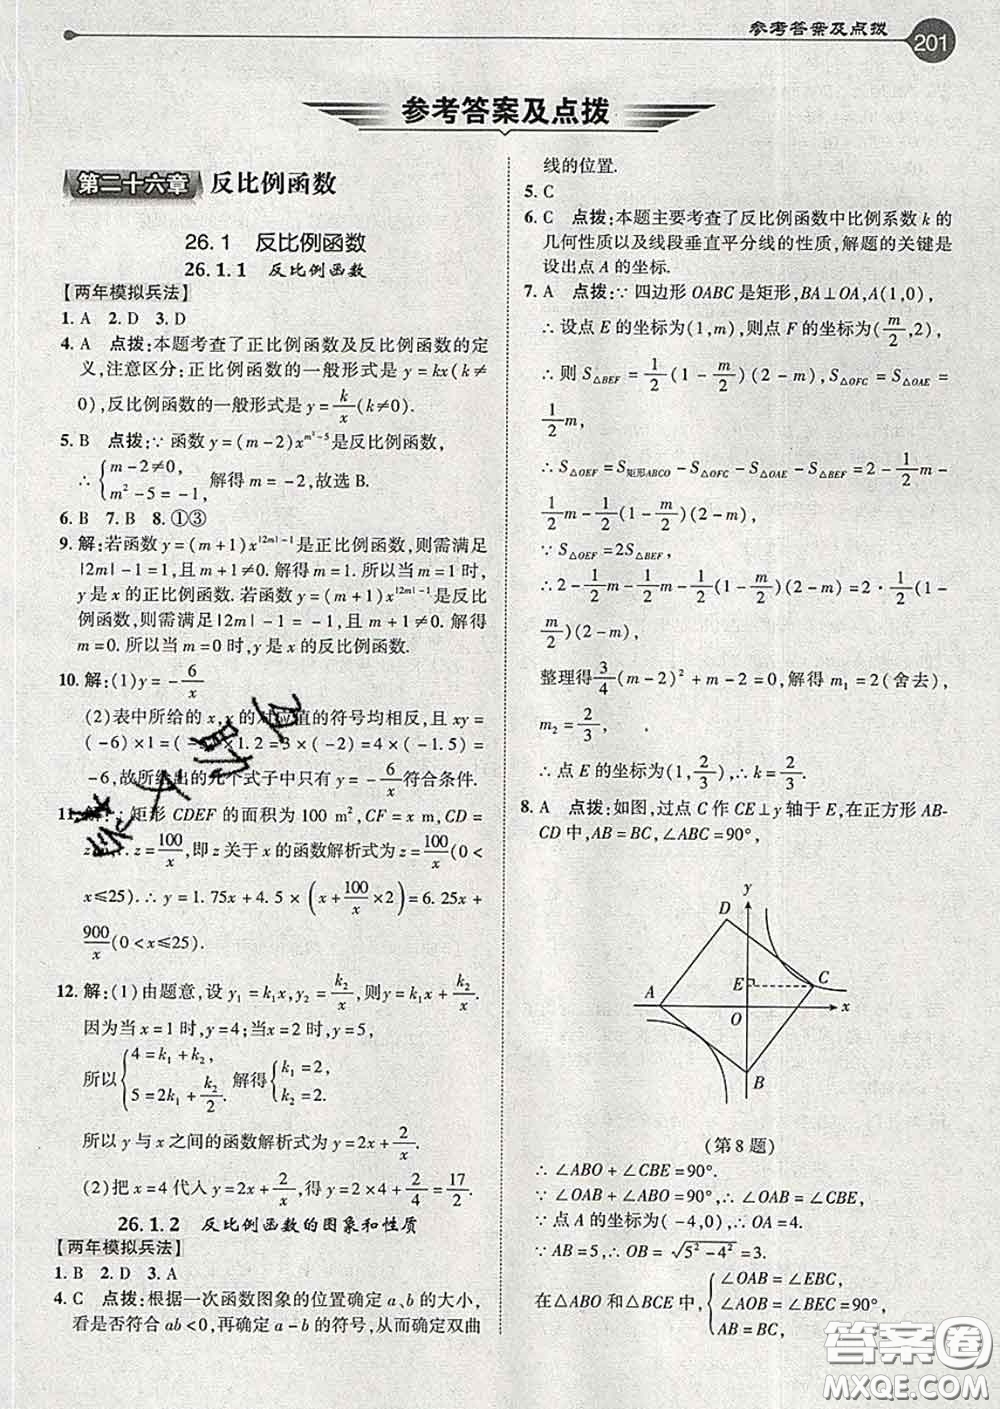 参考答案及点拨
201
参考答案及点拨
第二十六章 反比例函数
26.1 反比例函数
26.1.1 反比例函数
【两年模拟兵法】
1. A 2. D 3. D
4. A 点拨:本题考查了正比例函数及反比例函数的定
义,注意区分:正比例函数的一般形式是 y=kx(k≠
0),反比例函数的一般形式是 y=k/x(k≠0).
5. B 点拨:∵函数 y=(m-2)x^{m²-5}是反比例函数,
∴{m-2≠0, m²-5=-1, 解得 m=-2,故选 B.
6. B 7. B 8. ①③
9. 解:若函数 y=(m+1)x^{|2m|-1}是正比例函数,则需满足
|2m|-1=1,且 m+1≠0. 解得 m=1. 所以当 m=1 时,
y 是 x 的正比例函数. 若函数 y=(m+1)x^{|2m|-1}是反比
例函数,则需满足|2m|-1=-1,且 m+1≠0. 解得
m=0. 所以当 m=0 时,y 是 x 的反比例函数.
10. 解:(1)y=-6/x
(2)表中所给的 x,y 的对应值的符号均相反,且 xy=
(-6)×1=(-5)×1.2=3×(-2)=4×(-1.5)=
-6,故所给出的几个式子中只有 y=-6/x符合条件.
11. 解:∵矩形 CDEF 的面积为 100 m²,CF=x m,CD=
z m,∴z=100/x,即 z 关于 x 的函数解析式为 z=100/x(0<
x≤25).∴y=1.75x+4.5×(x+100/x×2)=6.25x+
900/x(0<x≤25).
12. 解:(1)由题意,设 y₁=k₁x,y₂=k₂/x,则y=k₁x+k₂/x.
因为当 x=1 时,y=4;当x=2 时,y=5,
所以{4=k₁+k₂, 5=2k₁+k₂/2. 解得{k₁=2, k₂=2.
所以 y 与 x 之间的函数解析式为 y=2x+2/x.
(2)把 x=4 代入 y=2x+2/x,得 y=2×4+2/4=17/2.
26.1.2 反比例函数的图象和性质
【两年模拟兵法】
1. B 2. D 3. A
4. C 点拨:根据一次函数图象的位置确定 a、b 的大小,
看是否符合 ab<0,再确定 a-b 的符号,从而确定双曲
线的位置.
5. C
6. C 点拨:本题主要考查了反比例函数中比例系数 k 的
几何性质以及线段垂直平分线的性质,解题的关键是
设出点 A 的坐标.
7. A 点拨:∵四边形 OABC 是矩形,BA⊥OA,A(1,0),
∴设点 E 的坐标为(1,m),则点 F 的坐标为(m/2,2),
∴则 S△BEF=1/2(1-m/2)(2-m),S△OFC=S△OAE=
1/2m,
∴S△OEF=S矩形ABCO-S△OFC-S△OAE-S△BEF=2-1/2m-
1/2m-1/2(1-m/2)(2-m),
∵S△OEF=2S△BEF,
∴2-1/2m-1/2m-1/2(1-m/2)(2-m)=2·1/2(1-
m/2)(2-m),
整理得3/4(m-2)²+m-2=0,解得 m₁=2(舍去),
m₂=2/3,
∴点 E 的坐标为(1,2/3),∴k=2/3.
8. A 点拨:如图,过点 C 作 CE⊥y 轴于 E,在正方形 AB-
CD 中,AB=BC,∠ABC=90°,
y
D
E
C
A
O
x
B
(第 8 题)
∴∠ABO+∠CBE=90°.
∵∠OAB+∠ABO=90°,∴∠OAB=∠CBE,
∵点 A 的坐标为(-4,0),∴OA=4.
∵AB=5,∴OB=√(5²-4²)=3.
在△ABO 和△BCE 中,{∠OAB=∠EBC, ∠AOB=∠BEC=90°, AB=BC,
答案圈
MXQE.COM